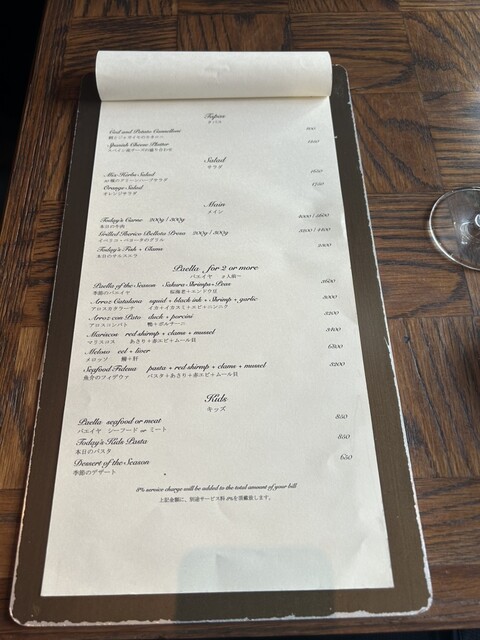 Tapas
タパス
Cod and Potato Cannelloni
鱈とジャガイモのカネロニ
Spanish Cheese Platter
スペイン産チーズの盛り合わせ
Salad
サラダ
Mix Herbs Salad
グリーンハーブサラダ
Orange Salad
オレンジサラダ
Main
メイン
Today's Carne 200g / 300g
本日の牛肉
Grilled Iberico Bellota Presa 200g / 300g
イベリコ・ベジョータのグリル
Today's Fish + Clams
本日のサルスエラ
Paella for 2 or more
パエイヤ 2人前〜
Paella of the Season Sakura Shrimps + Peas 2600
季節のパエイヤ 桜海老+エンドウ豆
Arroz Catalana squid + black ink + shrimp + garlic 3000
アロスカタラーナ イカ+イカスミ+エビ+ニンニク
Arroz con Pato duck + porcini 3200
アロスコンパト 鴨+ポルチーニ
Mariscos red shrimp + clams + mussel 3400
マリスコス あさり+赤エビ+ムール貝
Meloso eel + liver
メロッソ 鰻+肝
Seafood Fideua pasta + red shrimp + clams + mussel 3200
魚介のフィデウァ パスタ+あさり+赤エビ+ムール貝
Kids
キッズ
Paella seafood or meat 850
パエイヤ シーフード or ミート
Today's Kids Pasta 850
本日のパスタ
Dessert of the Season 650
季節のデザート
8% service charge will be added to the total amount of your bill
上記金額に、別途サービス料 8%を頂戴致します。